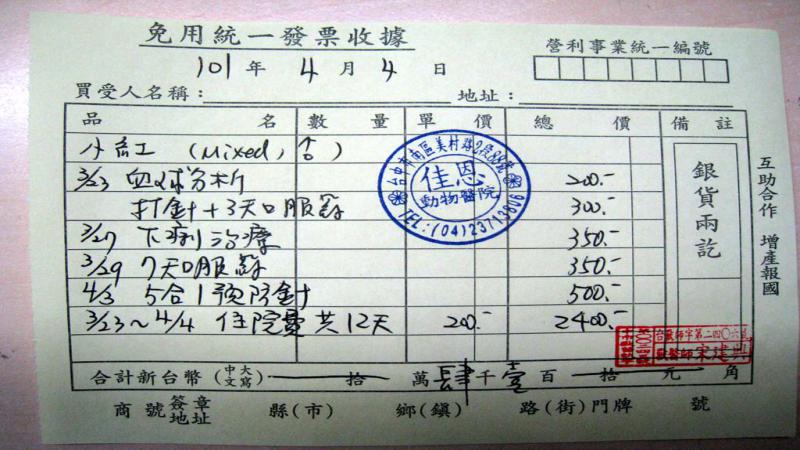 免用統一發票收據
營利事業統一編號
101年 4月 4日
買受人名稱： 地址：
品名 數量 單價 總價 備註
小紅 (Mixed, ♂)
3/23 血球分析 200.-
打針+3天口服藥 300.-
3/27 下痢治療 350.-
3/29 7天口服藥 350.-
4/3 5合1預防針 500.-
3/23~4/4 住院費共12天 200.- 2400.-
合計新台幣(中文大寫) 拾 萬肆千壹百 拾 元 角
商號 簽章 地址 縣(市) 鄉(鎮) 路(街)門牌 號
銀貨兩訖
互助合作 增產報國
台中市南區美村路2段88號
佳恩
動物醫院
TEL:(04)23713806
獸醫師宋建興